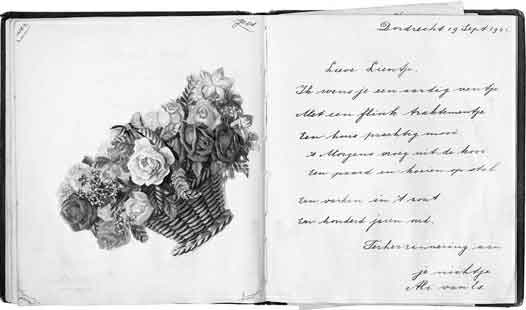 Dordrecht 19 Sept. 19
Lieve Lientje.
Ik wens je een aardig ventje
Met een flink traktementje
Een huis prachtig mooi
's Morgens vroeg uit de kooi
Een paard en koeien op stal
Een varken in 't zout
En honderd jaren oud.
Ter herinnering aan
je nichtje